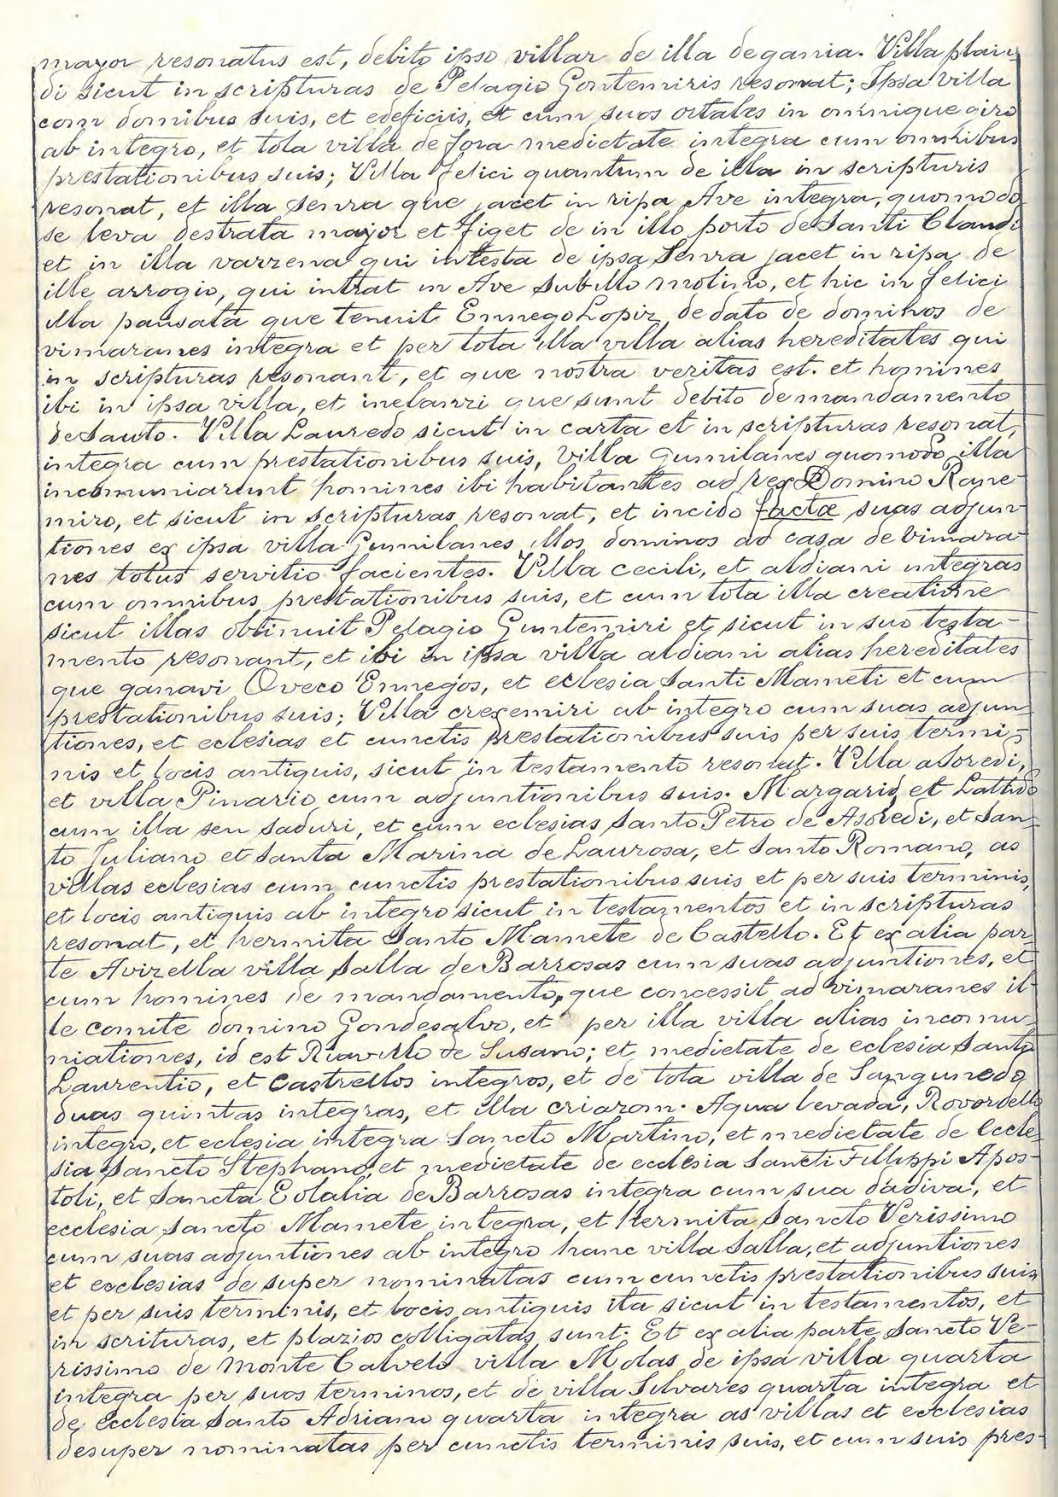 mayor resonatus est, debito ipso villar de illa degania. Villa plan
di sicut in scripturas de Pelagio Gontemiris resonat; Ipsa villa
com domibus suis, et edeficiis, et cum suos ortales in omnique giro
ab integro, et tota villa de fora medietate integra cum omnibus
prestationibus suis; Villa felici quantum de illa in scripturis
resonat, et illa senra que jacet in ripa Ave integra, quomodo
se leva destrata mayor et figet de in illo porto de Santi Claudi
et in illa varzena qui intesta de ipsa Senra jacet in ripa de
ille arrogio, qui intrat in Ave subillo molino, et hic in felici
illa pausata que tenuit Ennego Lopiz de dato de dominos de
vimaranes integra et per tota illa villa alias hereditates qui
in scripturas resonant, et que nostra veritas est. et homines
ibi in ipsa villa, et que sunt debito de mandamento
de Santo. Villa Lauredo sicut in carta et in scripturas resonat,
integra cum prestationibus suis, Villa Gumilanes quomodo illa
incomuniarunt homines ibi habitantes ad rex Domino Rane-
miro, et sicut in scripturas resonat, et incido factæ suas adjun-
tiones ex ipsa villa Gumilanes illos dominos ad casa de vimara-
nes totus servitio facientes. Villa cecili, et aldiani integras
cum omnibus prestationibus suis, et cum tota illa creatione
sicut illas obtinuit Pelagio Guntemiri et sicut in suo testa-
mento resonant, et ibi in ipsa villa aldiani alias hereditates
que ganavi Oveco Ennegos, et eclesia Santi Mameti et cum
prestationibus suis; Villa crexemiri ab integro cum suas adjun
tiones, et eclesias et cunctis prestationibus suis per suis termi-
nis et locis antiquis, sicut in testamento resonat. Villa asoredi,
et villa Pinario cum adjuntionibus suis. Margarid, et
cum illa seu saduri, et cum eclesias Santo Petro de Asoredi, et San-
to Juliano et Santa Marina de Laurosa, et Santo Romano, as
villas eclesias cum cunctis prestationibus suis et per suis terminis,
et locis antiquis ab integro sicut in testamentos et in scripturas
resonat, et hermita Santo Mamete de Castello. Et ex alia par-
te Avizella villa Salla de Barrosas cum suas adjuntiones, et
cum homines de mandamento, que concessit ad vimaranes il-
le comite domino Gondesalvo, et per illa villa alias incomu-
niationes, id est de Susano; et medietate de eclesia Santo
Laurentio, et Castrellos integros, et de tota villa de Sanguinedo
duas quintas integras, et illa criazom. Aqua levada, Rovordello
integro, et eclesia integra Sancto Martino, et medietate de Eccle-
sia Sancto Stephano, et medietate de ecclesia Sancti Fillippi Apos-
toli, et Sancta Eolalia de Barrosas integra cum sua dadiva, et
ecclesia Sancto Mamete integra, et hermita Sancto Verissimo
cum suas adjuntiones ab integro hanc villa Salla, et adjuntiones
et ecclesias de super nominatas cum cunctis prestationibus suis
et per suis terminis, et locis antiquis ita sicut in testamentos, et
in scrituras, et plazios colligatas sunt. Et ex alia parte Sancto Ve-
rissimo de Monte Calvelo villa Molas de ipsa villa quarta
integra per suos terminos, et de villa Silvares quarta integra et
de Ecclesia Santo Adriano quarta integra as villas et ecclesias
desuper nominatas per cunctis terminis suis, et cum suis pres-